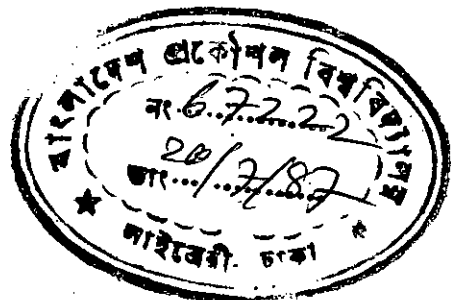 বাংলাদেশ প্রকৌশল বিশ্ববিদ্যালয়
নং. 67222
তাং... 20/7/87
★ লাইব্রেরী. ঢাকা ★